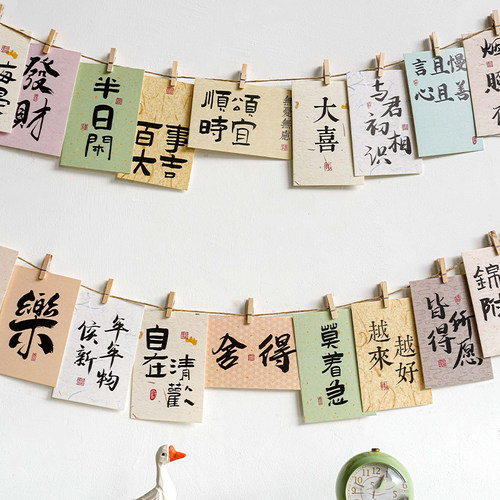 發財
半日開
百事
大吉
順頌
時宜
大喜
与君
初相
识
言且慢
心且善
樂
年年物
候新
自在
清歡
舍得
莫着急
越來
越好
皆得
所愿